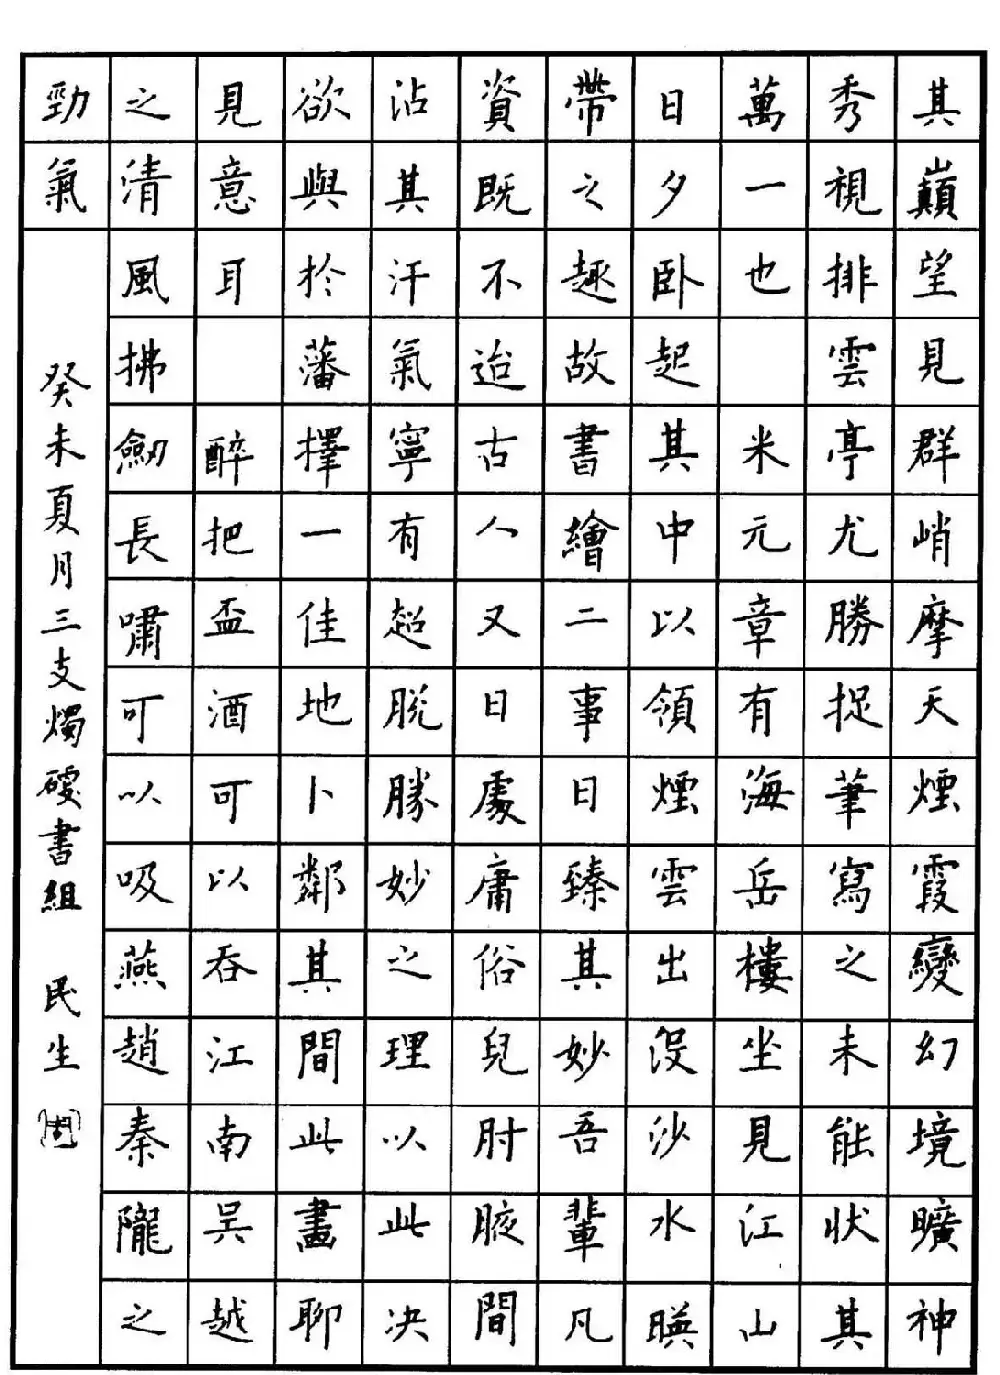 其巔望見群峭摩天煙霞變幻境曠神
秀視排雲亭尤勝捉筆寫之未能狀其
萬一也 米元章有海岳樓坐見江山
日夕卧起其中以領煙雲出沒沙水映
帶之趣故書繪二事日臻其妙吾輩凡
資既不迨古人又日處庸俗兒肘腋間
沾其汗氣寧有超脱勝妙之理以此决
欲與於藩擇一佳地卜鄰其間此畫聊
見意耳 醉把盃酒可以吞江南吳越
之清風拂劒長嘯可以吸燕趙秦隴之
勁氣
癸未夏月三支燭硬書組 民生